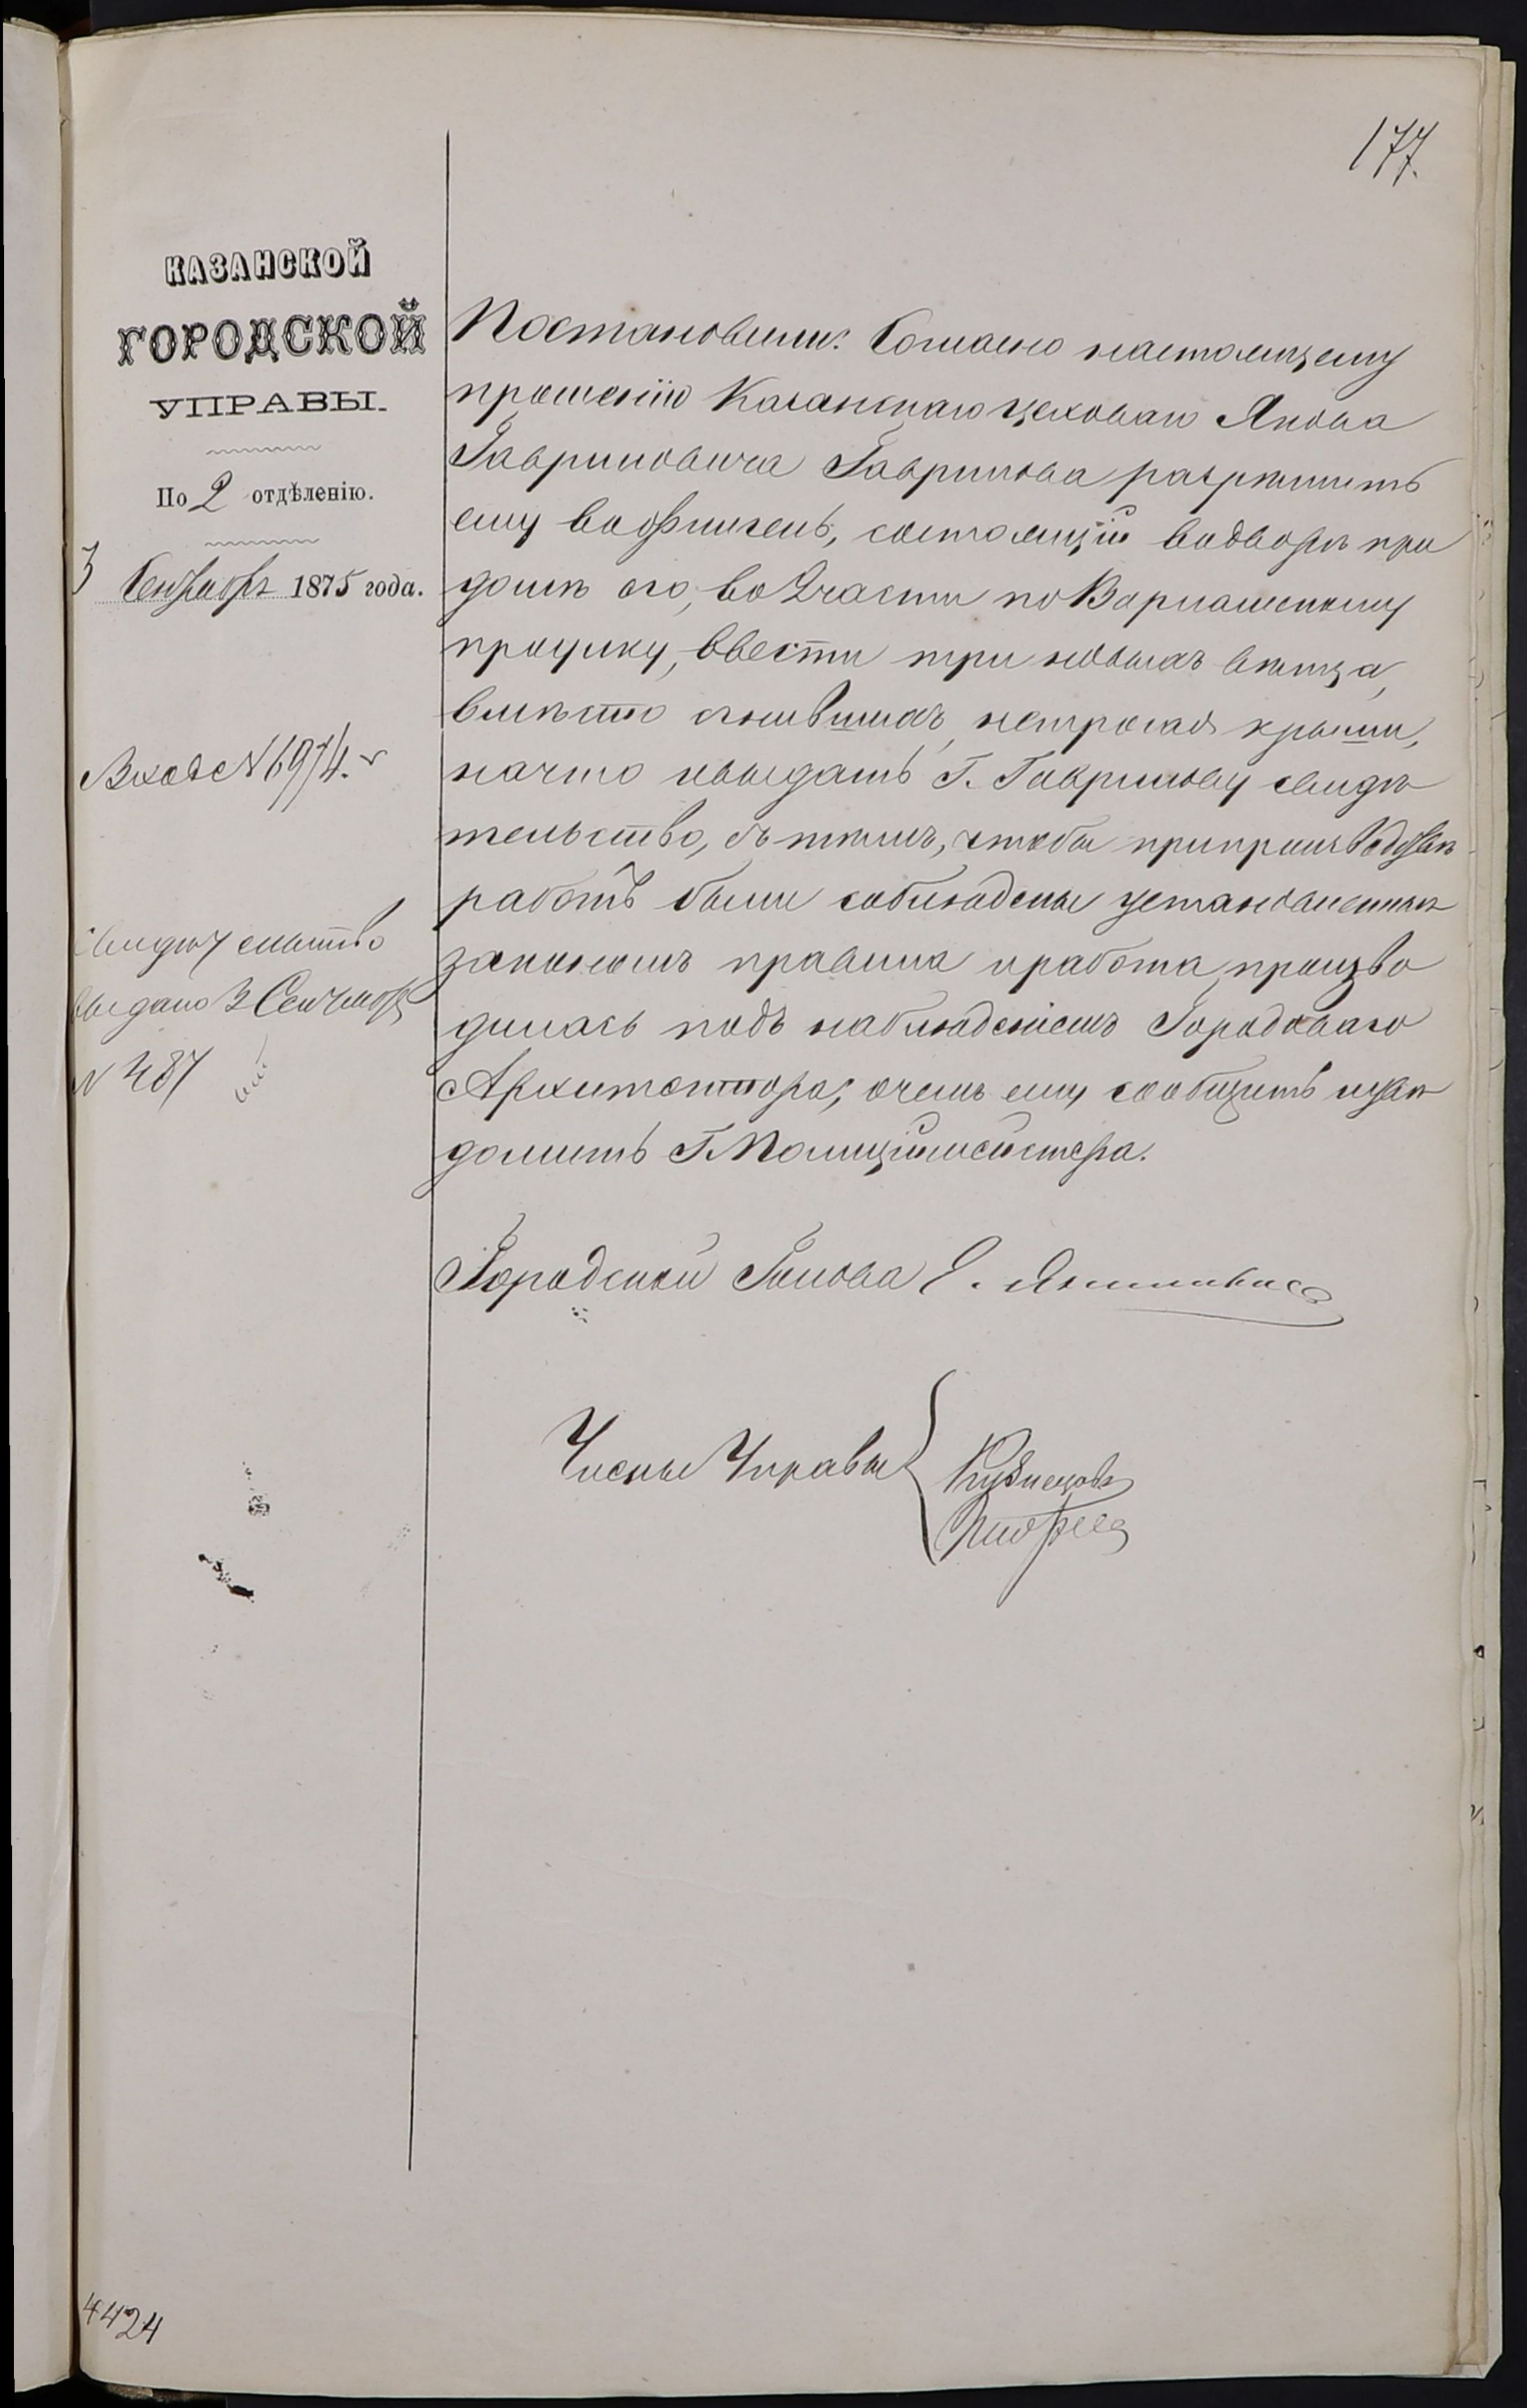 177.
КАЗАНСКОЙ
ГОРОДСКОЙ
УПРАВЫ.
По 2 отдѣленію.
3 Сентября 1875 года.
Входе N 6974.
Свидѣтельство
выдано 3 Сентября
N 487
Постановили: Согласно настоящему
прошенію Казанскаго цеховаго Якова
Гавриловича Гаврилова разрѣшить
ему во флигель, состоящій во дворѣ при
домѣ его, во 2 части по Варлашенскому
проулку, ввести три новыхъ вѣнца,
вмѣсто сгнившихъ, нетрогая крыши,
на что и выдать Г. Гаврилову свидѣ
тельство, съ тѣмъ, чтобы при производствѣ
работъ были соблюдены установленныя
закономъ правила и работа произво
дилась подъ наблюденіемъ Городоваго
Архитектора; о чемъ ему сообщить и увѣ
домить Г. Полиціймейстера.
Городской Голова
Члены Управы
Кузнецовъ
4424